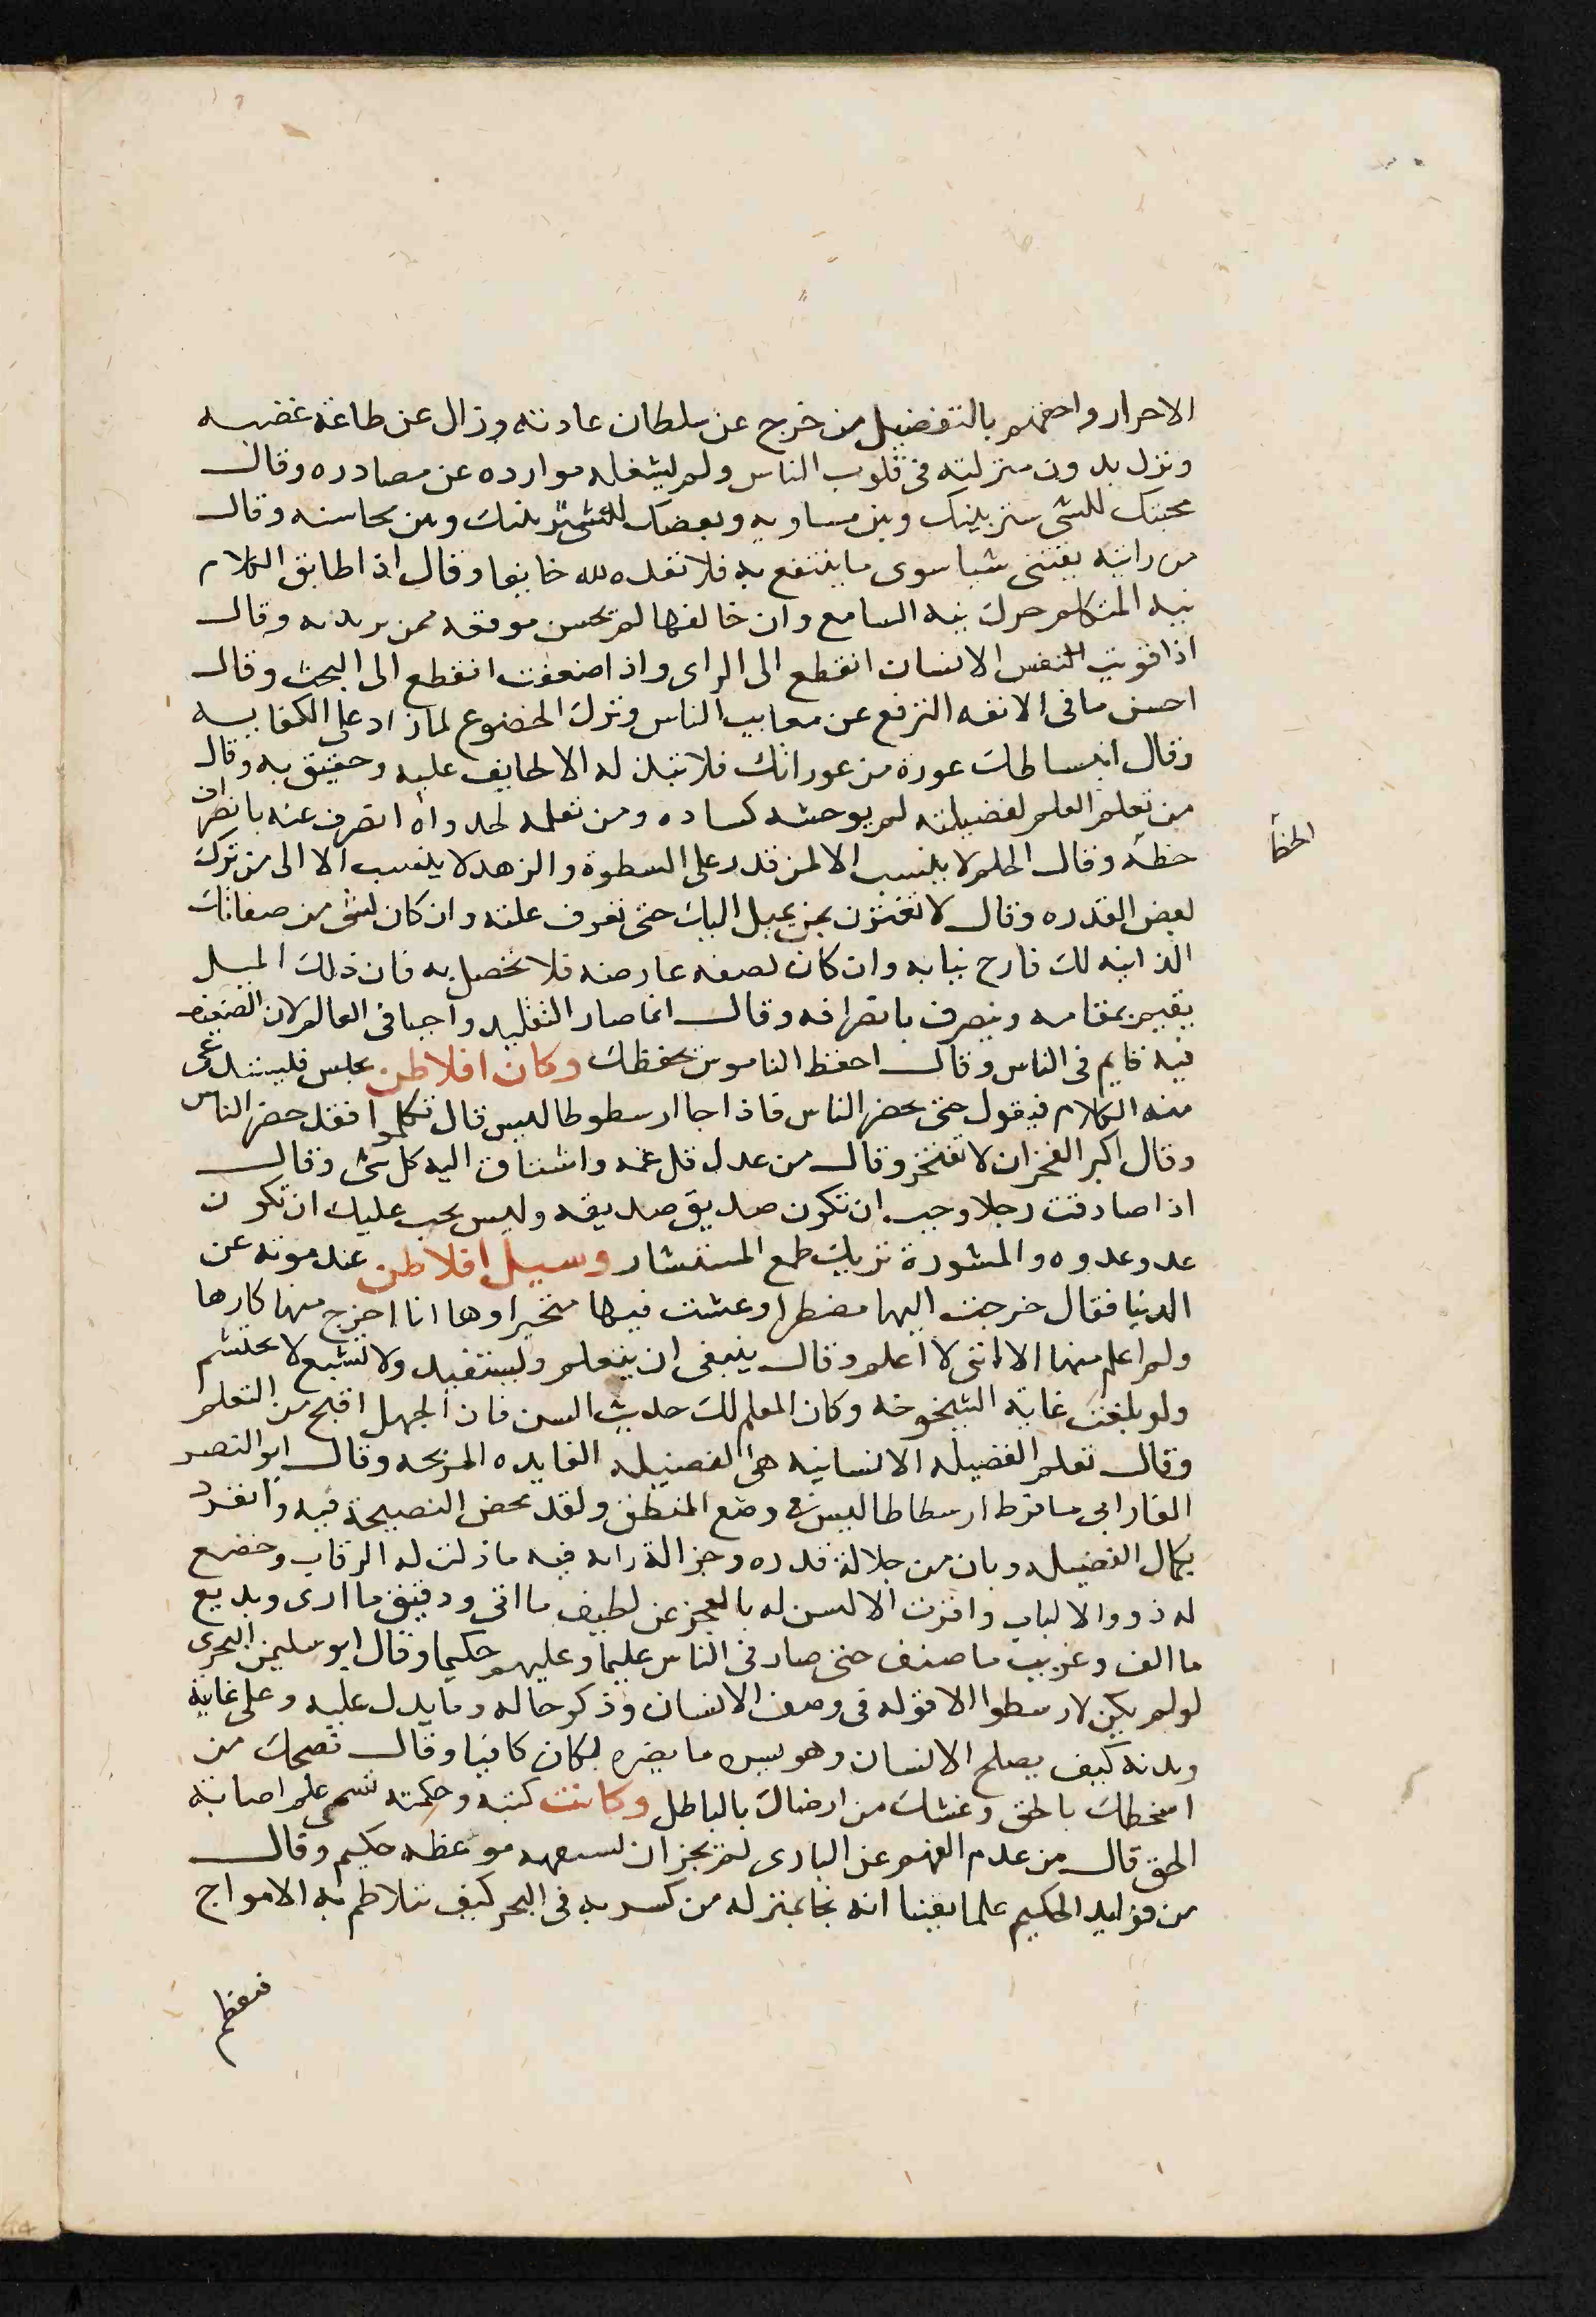 الاحرار واحقهم بالتفضيل من خرج عن سلطان عادته وزال عن طاعة غضبه
ونزل بدون منزلته فى قلوب الناس ولم يشغله موارده عن مصادره وقال
محبتك للشى ستر بينك وبين مساويه وبغضك للشى ستر بينك وبين محاسنه وقال
من راىته يقتنى شيا سوى ما ينتفع به فلا تعده لله خايفا وقال اذا طابق الكلام
نيه المتكلم حرك نيه السامع وان خالفها لم يحسن موقعه ممن يريد به وقال
اذا قويت النفس الانسان انقطع الى الراى واذا ضعفت انقطع الى البحث وقال
احسن ما فى الانفه الترفع عن معايب الناس وترك الخضوع لما زاد على الكفايه
وقال انبساطك عورة من عوراتك فلا تبذله الا لخايف عليه وحقيق به وقال
من تعلم العلم لفضيلته لم يوحشه كساده ومن تعلمه لجدواه انصرف عنه بانصراف
حظه وقال الحلم لا ينسب الا لمن قدر على السطوة والزهد لا ينسب الا الى من ترك
الخطا
بعض القدره وقال لا تغترن بمن يميل اليك حتى تعرف علته وان كان لشى من صفاتك
الذاتيه لك فارج ثباته وان كان لصفه عارضه فلا تحفل به فان ذلك الميل
يقيم بمقامه وينصرف بانصرافه وقال انما صار التقليد واجبا فى العالم لان الضعف
فيه قايم فى الناس وقال احفظ الناموس يحفظك وكان افلاطن يجلس فليستدعى
منه الكلام فيقول حتى يحضر الناس فاذا جا ارسطوطاليس قال تكلموا فقد حضر الناس
وقال اكبر الفخر ان لا تفتخر وقال من عدل قل غمه واشتاق اليه كل شى وقال
اذا صادقت رجلا وجب ان تكون صديق صديقه وليس يجب عليك ان تكون
عدو عدوه والمشورة تريك طبع المستشار وسيل افلاطن عند موته عن
الدنيا فقال خرجت اليها مضطرا وعشت فيها متحيرا وها انا اخرج منها كارها
ولم اعلم منها الا اننى لا اعلم وقال ينبغى ان يتعلم ويستفيد ولا تشبع لا تحتشم
ولو بلغت غاية الشيخوخه وكان المعلم لك حديث السن فان الجهل اقبح من التعلم
وقال تعلم الفضيله الانسانيه هى الفضيله الفايده المربحه وقال ابو النصر
الفارابى ما فرط ارسطاطاليس فى وضع المنطق ولقد محض النصيحة فيه وانفرد
بكمال الفضيله وبان من جلالة قدره وجزالة رايه فيه ما ذلت له الرقاب وخضع
له ذووا الالباب واقرت الالسن له بالعجز عن لطيف ما اتى ودقيق ما ارى وبديع
ما الف وغريب ما صنف حتى صار فى الناس عليما وعليهم حكيما وقال ابو سليمن السجزى
لو لم يكن لارسطوا الا قوله فى وصف الانسان وذكر حاله وما يدل عليه وعلى غاية
وبدنه كيف يصلح الانسان وهو يسره ما يضره لكان كافيا وقال نصحك من
اسخطك بالحق وغشك من ارضاك بالباطل وكانت كتبه وحكمته تسمى علم اصابة
الحق قال من عدم الفهم عن البارى لم يجز ان يسمعه موعظه حكيم وقال
من فوايد الحكيم علما يقينا انه نجا بمنزله من كسر به فى البحر كيف تتلاطم به الامواج
فتعظم